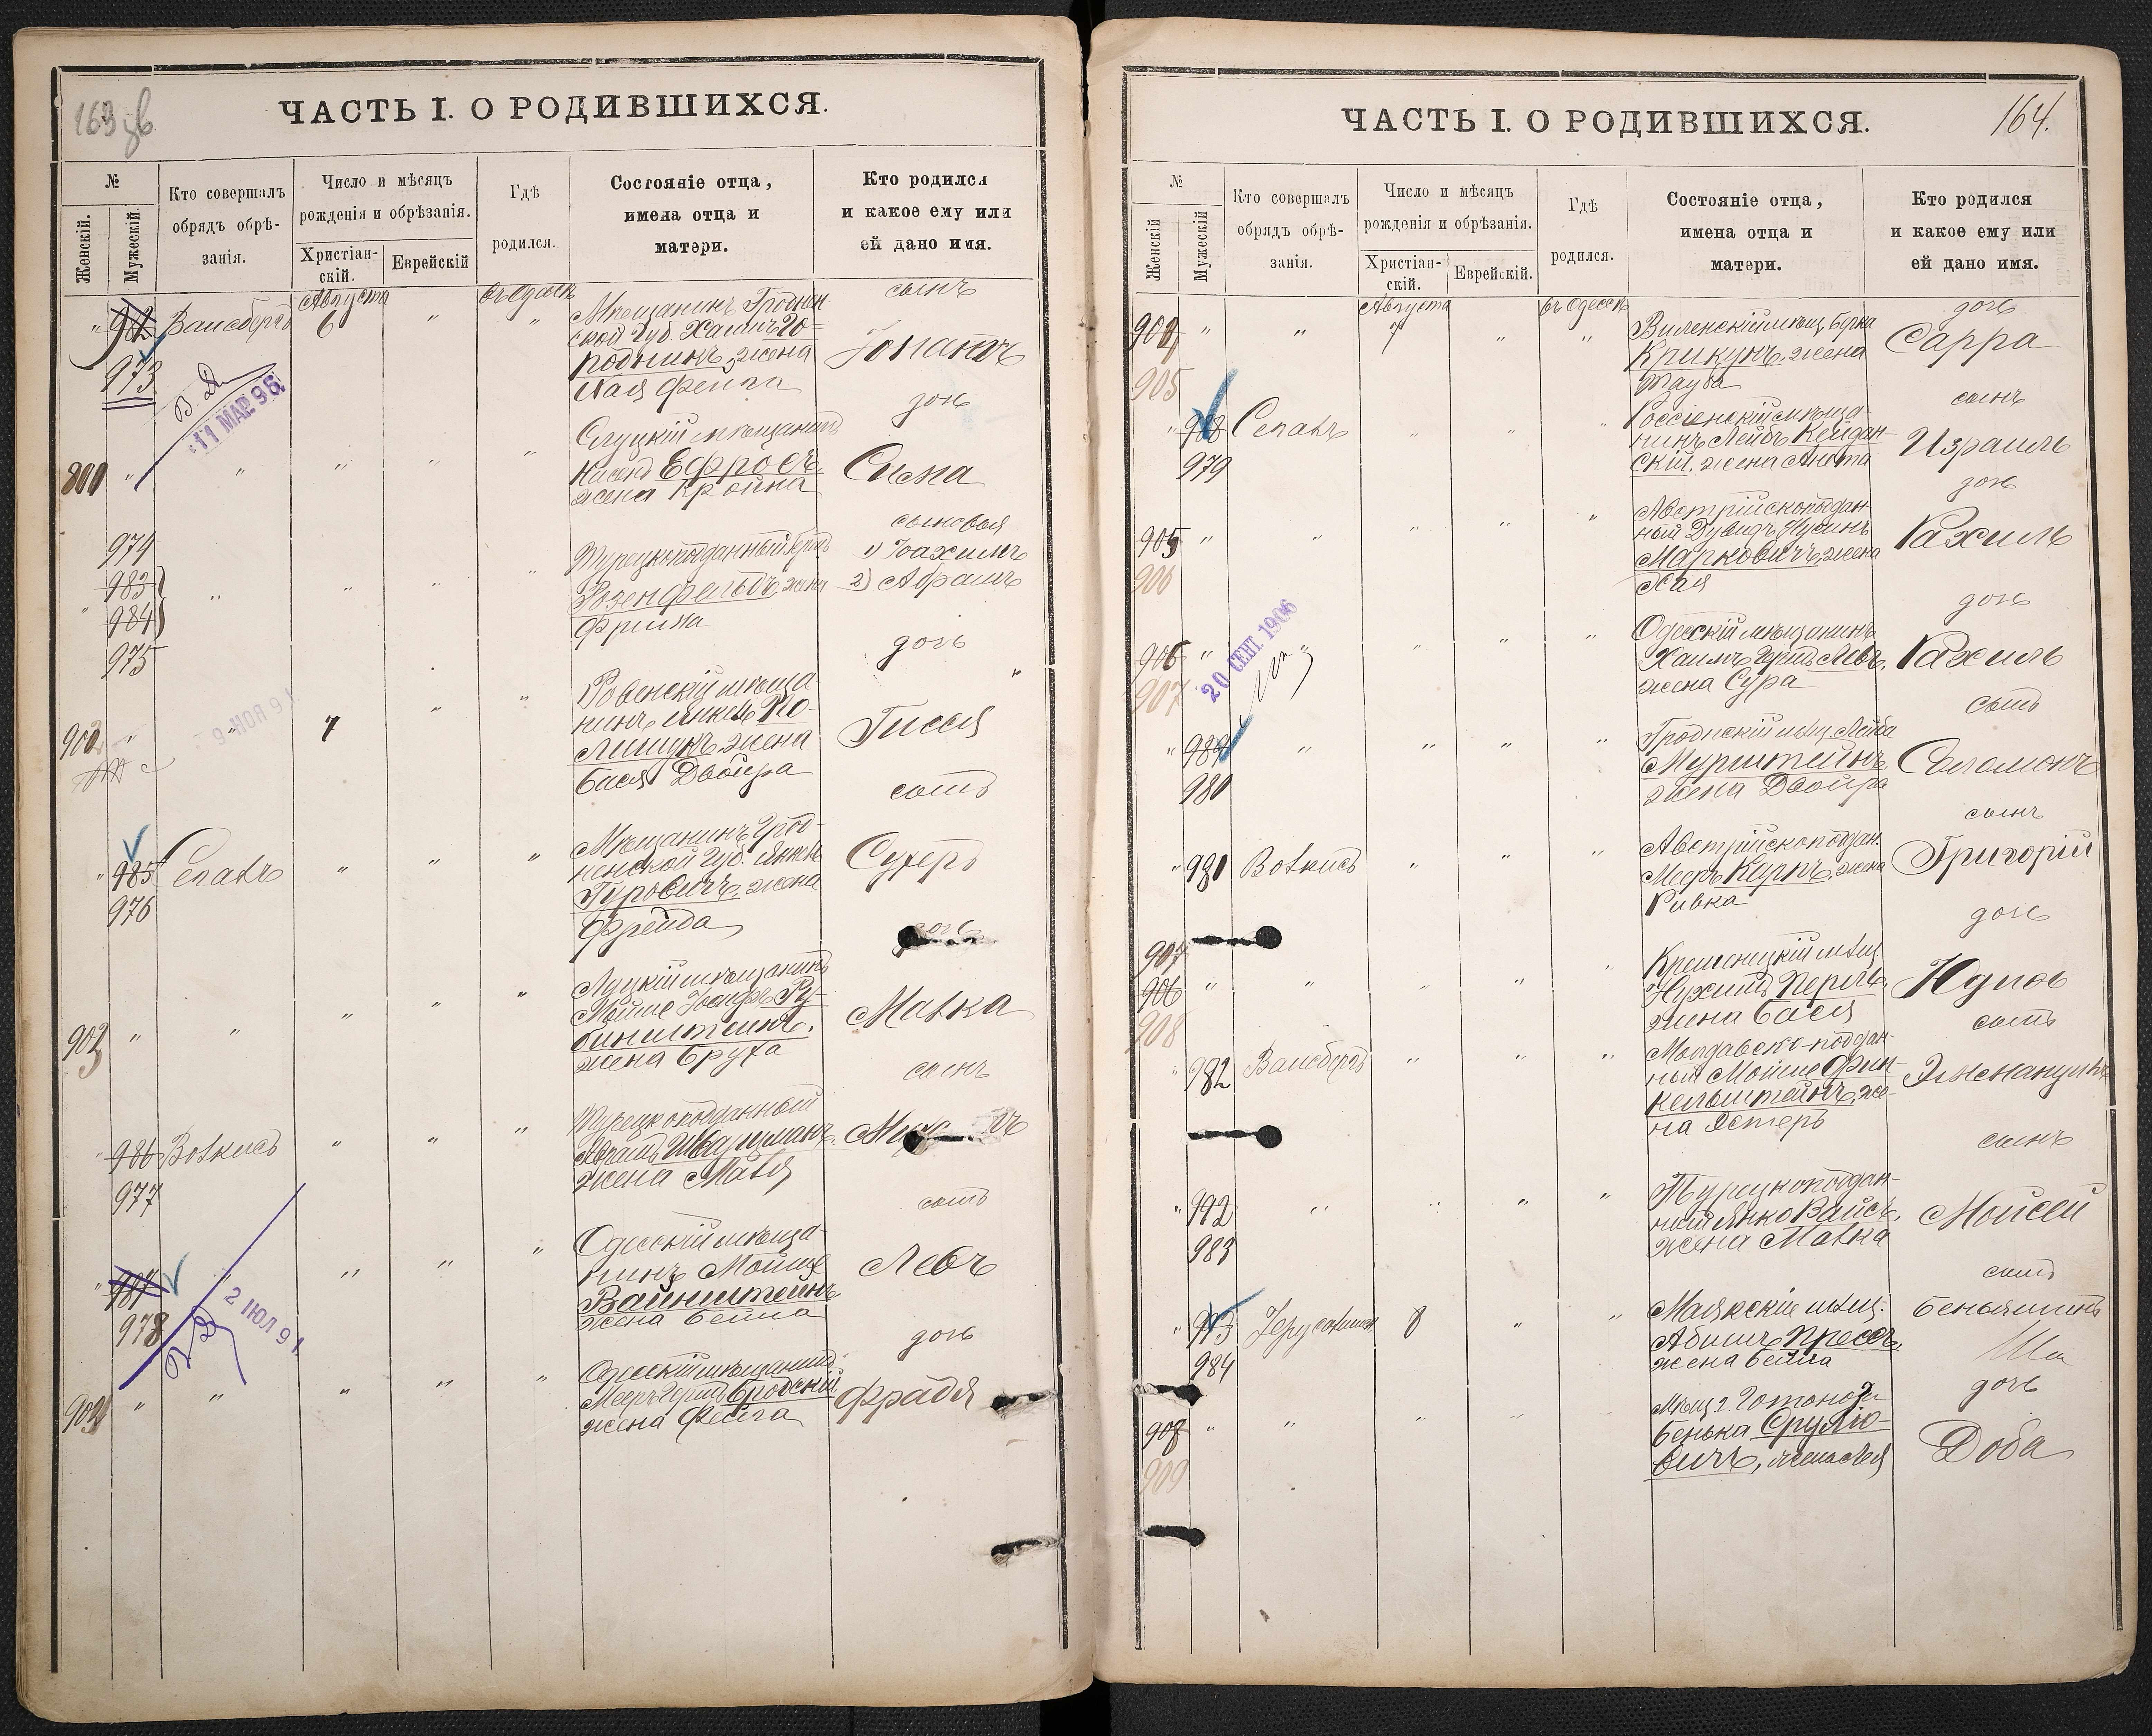 163 зв
ЧАСТЬ I. О РОДИВШИХСЯ.
№
Женскій.
Мужескій.
Кто совершалъ
обрядъ обрѣ-
занія.
Число и мѣсяцъ
рожденія и обрѣзанія.
Христіан-
скій.
Еврейскій
Гдѣ
родился.
Состояніе отца,
имена отца и
матери.
Кто родился
и какое ему или
ей дано имя.
" 982 Вансбергъ Августа 6 " въ Одессѣ "
973
Мѣщанинъ Гроднен-
ской Губ. Хаимъ Го-
родникъ, жена
Хая Фейга
сынъ
11 МАР. 96
Слуцкій мѣщанинъ
жена Кройна
дочь
Сима
" " " " "
974
983
984
975
Турецкоподданный
Розенфельдъ, жена
Фрима
сыновья
1) Іоахимъ
2) Абрамъ
902 " " 7 " "
9-НОЯ 91
Ровенскій мѣща-
нинъ Янкель По-
лищукъ, жена
Бася Двойра
дочь
Гисся
" 985 " " "
976
Мѣщанинъ Грод-
ненской Губ. Янкель
Гуровичъ, жена
Фрейда
сынъ
Сухеръ
903 " " " " "
Луцкій мѣщанинъ
Мойше Іосифъ Ру-
бинштейнъ,
жена Бруха
дочь
Малка
" 986 Волкисъ " " "
977
Турецкоподданный
Абрамъ Шварцманъ,
жена Маля
сынъ
" 987 " " " "
978
2 ІЮЛ 91
Одесскій мѣща-
нинъ Мойше
Вайнштейнъ
жена Бейла
сынъ
Левъ
904 " " " " "
Одесскій мѣщанинъ
Мееръ Герш. Бродскій,
жена Фейга
дочь
Фрадя
164.
ЧАСТЬ I. О РОДИВШИХСЯ.
№
Женскій
Мужескій
Кто совершалъ
обрядъ обрѣ-
занія.
Число и мѣсяцъ
рожденія и обрѣзанія.
Христіан-
скій.
Еврейскій.
Гдѣ
родился.
Состояніе отца,
имена отца и
матери.
Кто родился
и какое ему или
ей дано имя.
" " Августа 7 " въ Одессѣ "
905
Виленскій мѣщ. Берка
Крикунъ, жена
Тауба
дочь
Сарра
" 988 " " "
979
Россіенскій мѣща-
нинъ Лейбъ Кейдан-
скій, жена Анета
сынъ
Израиль
905 " " " " "
906
Австрійскоподдан-
ный Дувидъ Нусинъ
Марковичъ, жена
Хая
дочь
Рахиль
906 " " " " "
907
20 СЕНТ 1906
Одесскій мѣщанинъ
Хаимъ Герш. Левъ,
жена Сура
дочь
Рахиль
" 989 " " " "
980
Гродненскій мѣщ. Лейба
Мурштейнъ
жена Двойра
сынъ
Соломонъ
" 981 Волкисъ " " "
Австрійскоподдан.
Мееръ Карпъ, жена
Ривка
сынъ
Григорій
907
906 " " " " "
908
Кременецкій мѣщ.
Нухимъ Перль,
жена Бася
дочь
Юдись
" 982 Вансбергъ " " "
Молдавско-поддан-
ный Мойше Фин-
кельштейнъ, же-
на Эстеръ
сынъ
Эммануилъ
" 992 " " " "
983
Турецкоподдан-
ный Янко Вайсъ,
жена Малка
сынъ
Моисей
" 993 8 " "
984
Маякскій мѣщ.
Абишъ Прессъ,
жена Бейла
сынъ
Беньяминъ
908 " " " " "
909
Бенька Срулю-
вичъ, жена Лея
дочь
Доба